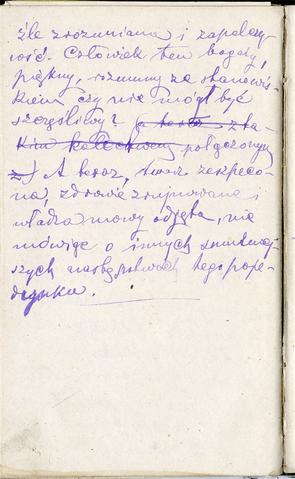 źle zrozumiana i zapalczy-
wość. Człowiek ten bogaty,
piękny, rozumny ze stanowis-
kiem czy nie mógł być
szczęśliwy? (a teraz z ta-
kim kalectwem
A teraz, twarz zeszpeco-
na, zdrowie zrujnowane i
władza mowy odjęta, nie
mówiąc o innych smutniej-
szych następstwach tego poje-
dynku.